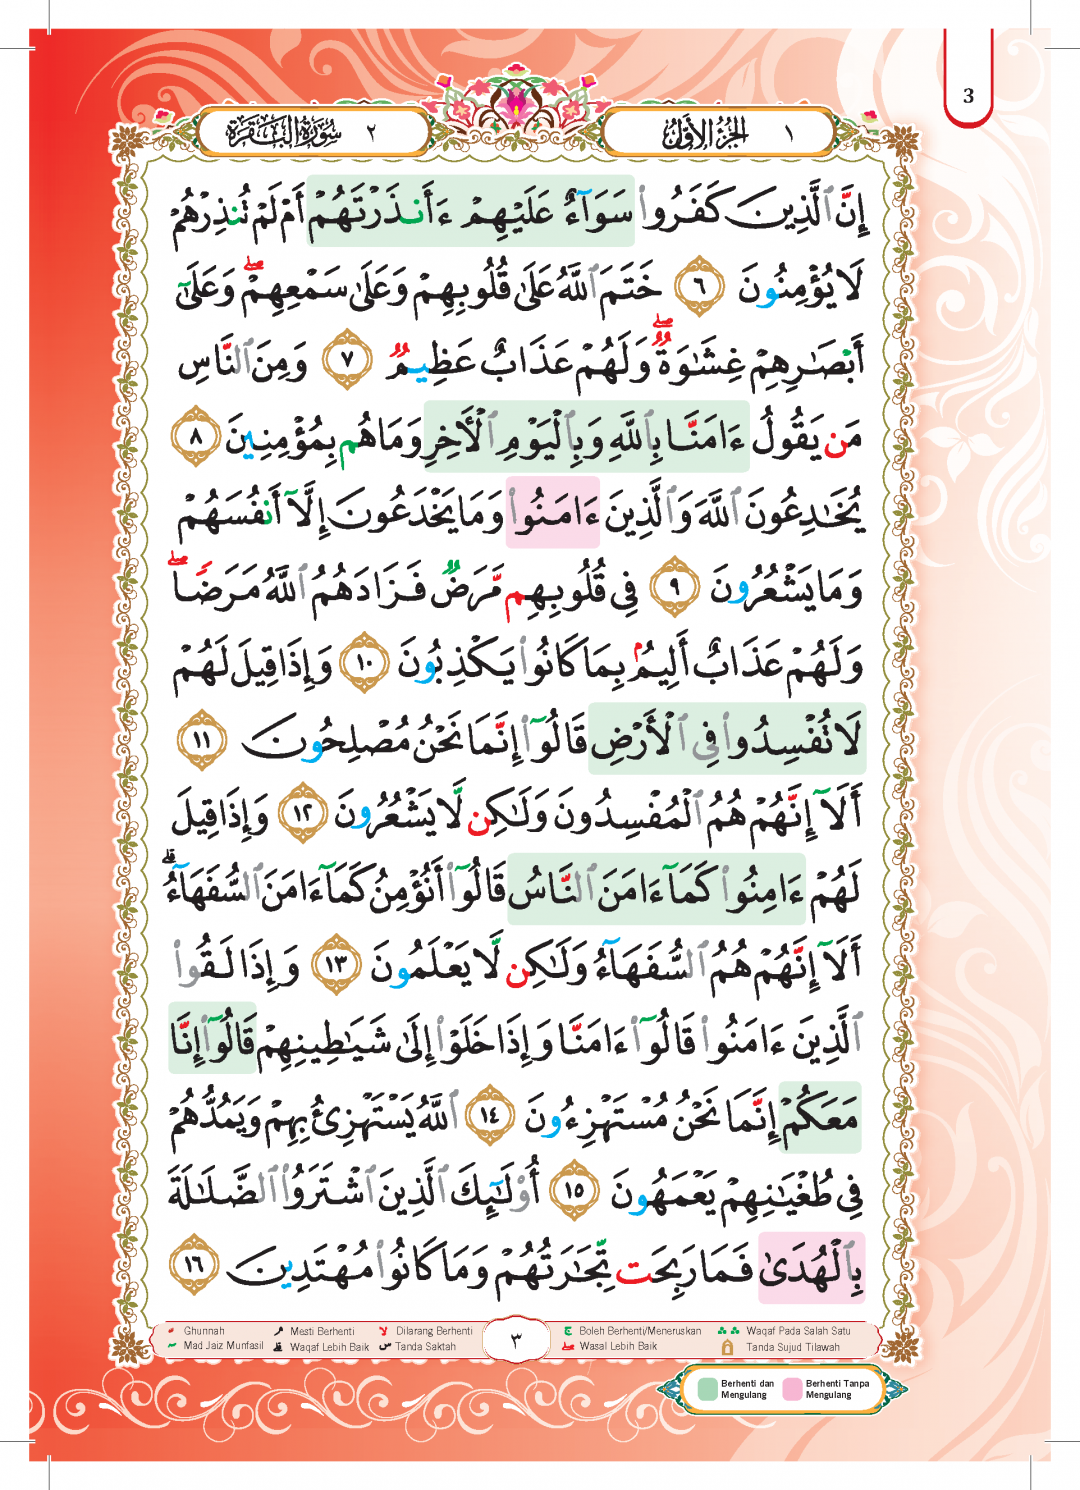 3
سُورَةُ الْبَقَرَةِ ٢
الجُزْءُ الأَوَّلُ ١
إِنَّ ٱلَّذِينَ كَفَرُوا۟ سَوَآءٌ عَلَيْهِمْ ءَأَنذَرْتَهُمْ أَمْ لَمْ تُنذِرْهُمْ
لَا يُؤْمِنُونَ ٦ خَتَمَ ٱللَّهُ عَلَىٰ قُلُوبِهِمْ وَعَلَىٰ سَمْعِهِمْ ۖ وَعَلَىٰٓ
أَبْصَـٰرِهِمْ غِشَـٰوَةٌ ۖ وَلَهُمْ عَذَابٌ عَظِيمٌ ٧ وَمِنَ ٱلنَّاسِ
مَن يَقُولُ ءَامَنَّا بِٱللَّهِ وَبِٱلْيَوْمِ ٱلْأَخِرِ وَمَا هُم بِمُؤْمِنِينَ ٨
يُخَـٰدِعُونَ ٱللَّهَ وَٱلَّذِينَ ءَامَنُوا۟ وَمَا يَخْدَعُونَ إِلَّآ أَنفُسَهُمْ
وَمَا يَشْعُرُونَ ٩ فِى قُلُوبِهِم مَّرَضٌ فَزَادَهُمُ ٱللَّهُ مَرَضًا ۖ
وَلَهُمْ عَذَابٌ أَلِيمٌۢ بِمَا كَانُوا۟ يَكْذِبُونَ ١٠ وَإِذَا قِيلَ لَهُمْ
لَا تُفْسِدُوا۟ فِى ٱلْأَرْضِ قَالُوٓا۟ إِنَّمَا نَحْنُ مُصْلِحُونَ ١١
أَلَآ إِنَّهُمْ هُمُ ٱلْمُفْسِدُونَ وَلَـٰكِن لَّا يَشْعُرُونَ ١٢ وَإِذَا قِيلَ
لَهُمْ ءَامِنُوا۟ كَمَآ ءَامَنَ ٱلنَّاسُ قَالُوٓا۟ أَنُؤْمِنُ كَمَآ ءَامَنَ ٱلسُّفَهَآءُ ۗ
أَلَآ إِنَّهُمْ هُمُ ٱلسُّفَهَآءُ وَلَـٰكِن لَّا يَعْلَمُونَ ١٣ وَإِذَا لَقُوا۟
ٱلَّذِينَ ءَامَنُوا۟ قَالُوٓا۟ ءَامَنَّا وَإِذَا خَلَوْا۟ إِلَىٰ شَيَـٰطِينِهِمْ قَالُوٓا۟ إِنَّا
مَعَكُمْ إِنَّمَا نَحْنُ مُسْتَهْزِءُونَ ١٤ ٱللَّهُ يَسْتَهْزِئُ بِهِمْ وَيَمُدُّهُمْ
فِى طُغْيَـٰنِهِمْ يَعْمَهُونَ ١٥ أُو۟لَـٰٓئِكَ ٱلَّذِينَ ٱشْتَرَوُا۟ ٱلضَّلَـٰلَةَ
بِٱلْهُدَىٰ فَمَا رَبِحَت تِّجَـٰرَتُهُمْ وَمَا كَانُوا۟ مُهْتَدِينَ ١٦
Ghunnah Mesti Berhenti Dilarang Berhenti ٣ Boleh Berhenti/Meneruskan Waqaf Pada Salah Satu
Mad Jaiz Munfasil Waqaf Lebih Baik Tanda Saktah Wasal Lebih Baik Tanda Sujud Tilawah
Berhenti dan Berhenti Tanpa
Mengulang Mengulang